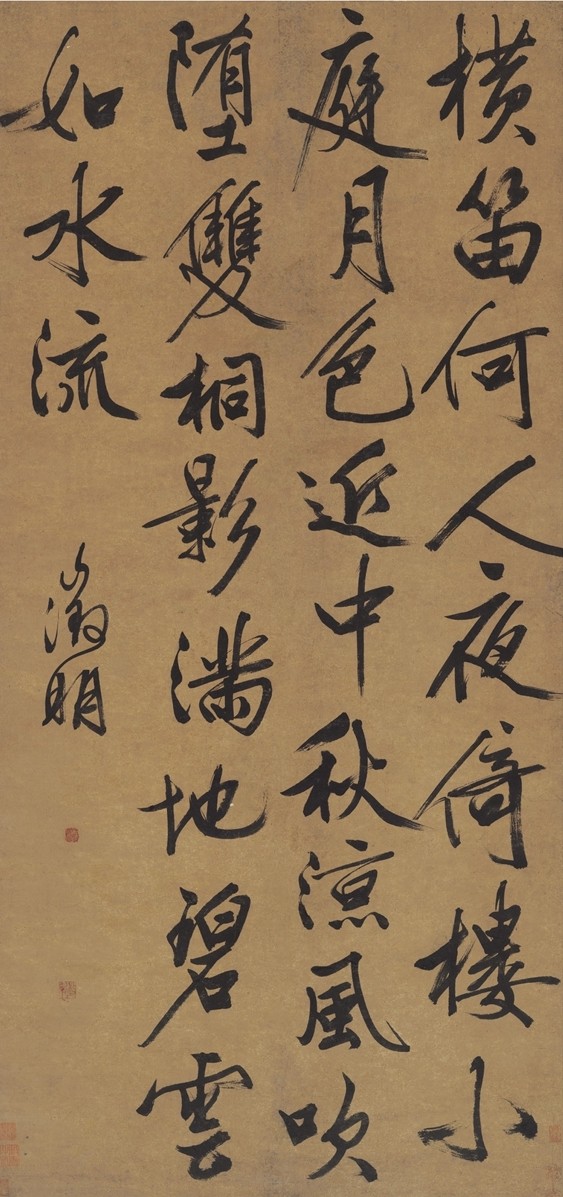 橫笛何人夜倚樓小
庭月色近中秋涼風吹
墮雙桐影滿地碧雲
如水流
徵明